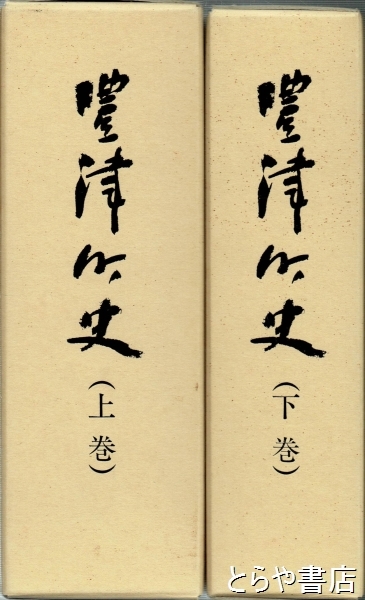 豊津町史
(上巻)
豊津町史
(下巻)
とらや書店